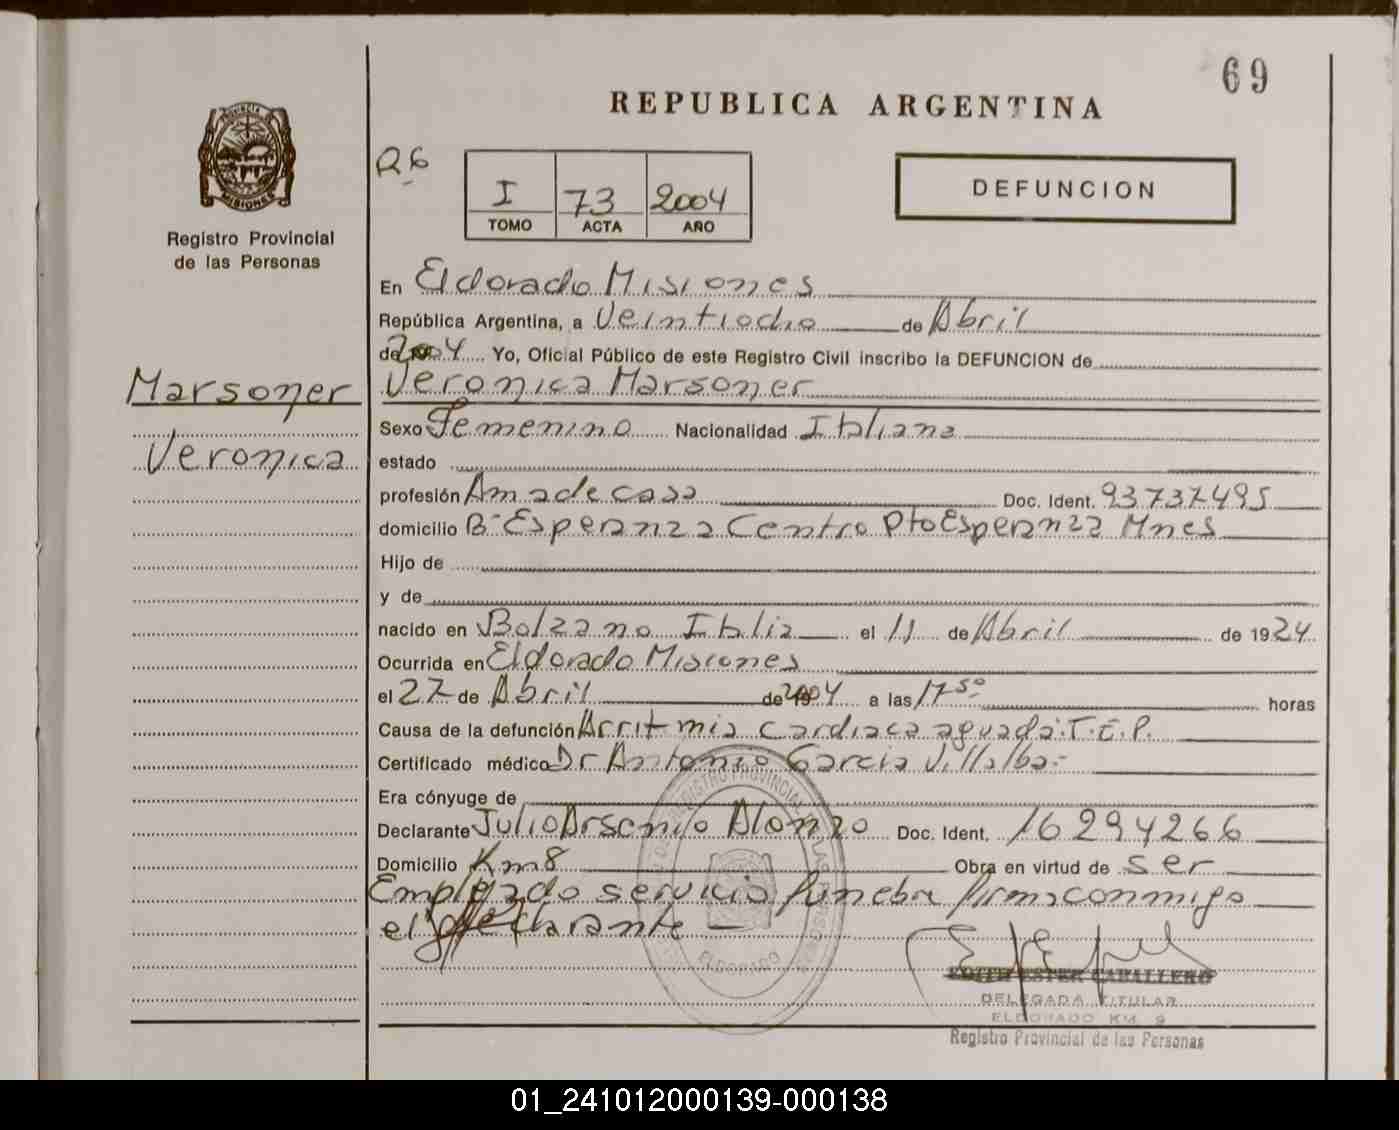 69
REPUBLICA ARGENTINA
PROVINCIA
MISIONES
Registro Provincial
de las Personas
R6
I 73 2004
TOMO ACTA AÑO
DEFUNCION
En Eldorado Misiones
República Argentina, a Veintiocho de Abril
de 2004 Yo, Oficial Público de este Registro Civil inscribo la DEFUNCION de
Marsoner
Veronica
Veronica Marsoner
Sexo Femenino Nacionalidad Italiana
estado
profesión Ama de casa Doc. Ident. 93.737.495
domicilio B- Esperanza Centro Pto Esperanza Mnes
Hijo de
y de
nacido en Bolzano Italia el 11 de Abril de 1924
Ocurrida en Eldorado Misiones
el 27 de Abril de 2004 a las 17 50 horas
Causa de la defunción Arritmia cardiaca aguada. T.E.P.
Certificado médico Dr Antonio Garcia Villalba.-
Era cónyuge de
Declarante Julio Arsenio Alonzo Doc. Ident. 16294266
Domicilio Km 8 Obra en virtud de ser
Empleado servicio funebre firma conmigo
el declarante
REGISTRO PROVINCIAL DE LAS PERSONAS
ELDORADO
EDITH ESTER CABALLERO
DELEGADA TITULAR
ELDORADO KM. 9
Registro Provincial de las Personas
01_241012000139-000138